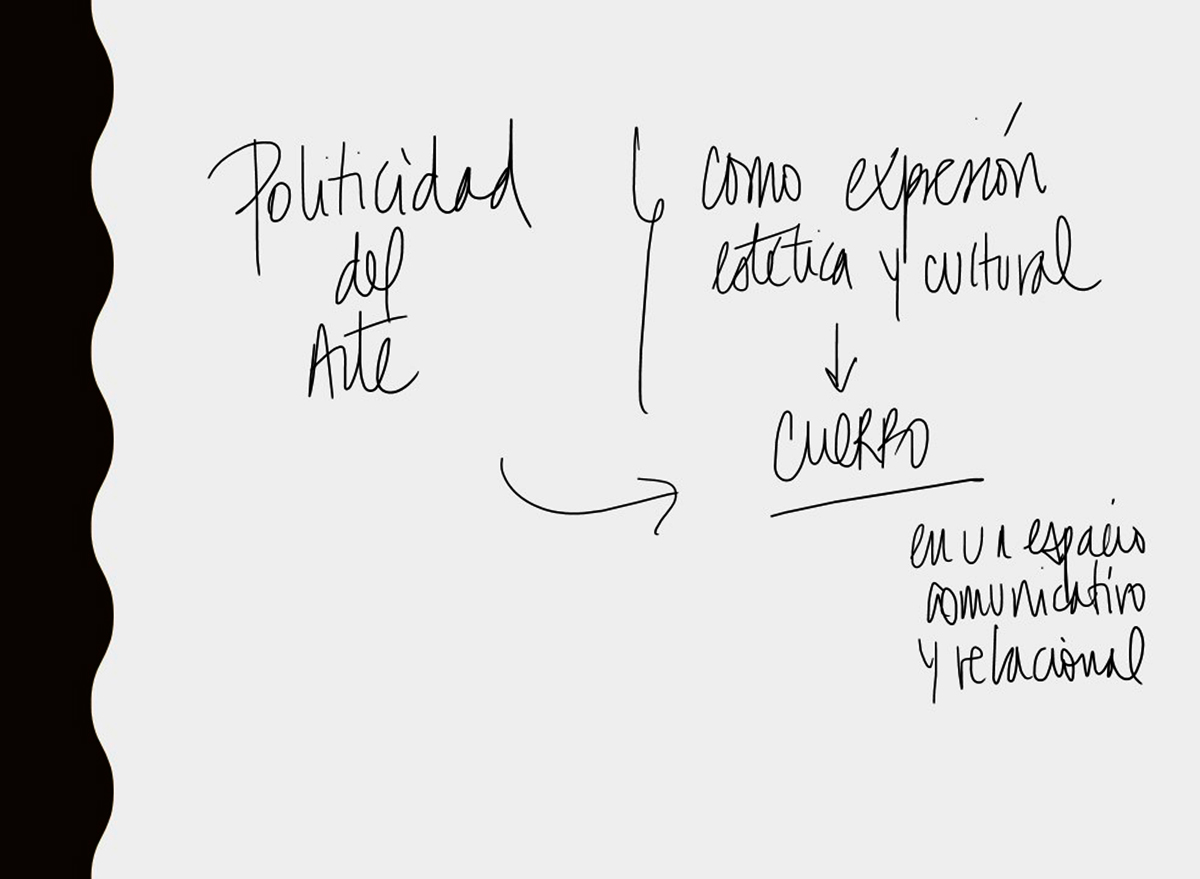 Politicidad
del
Arte
como expresión
estética y cultural
CUERPO
en un espacio
comunicativo
y relacional